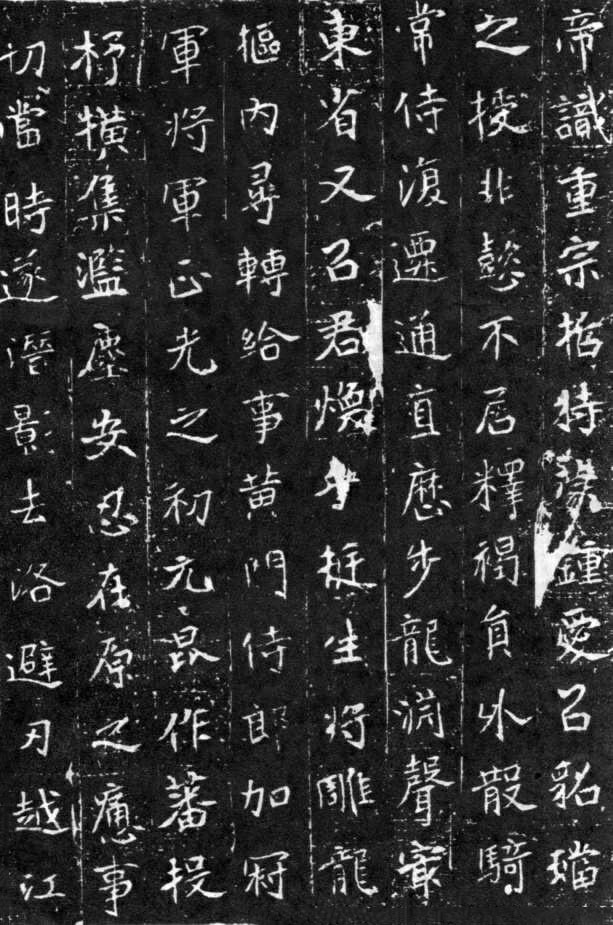 帝識重宗哲特蒙鍾愛以貂璫
之授非懿不居釋褐員外散騎
常侍復遷通直歷步龍淵聲實
東省又以君煥乎挺生將雕龍
樞內尋轉給事黃門侍郎加冠
軍將軍正光之初元昆作蕃投
杼橫集濫塵安忍在原之應事
切當時遂潛影去洛避刃越江